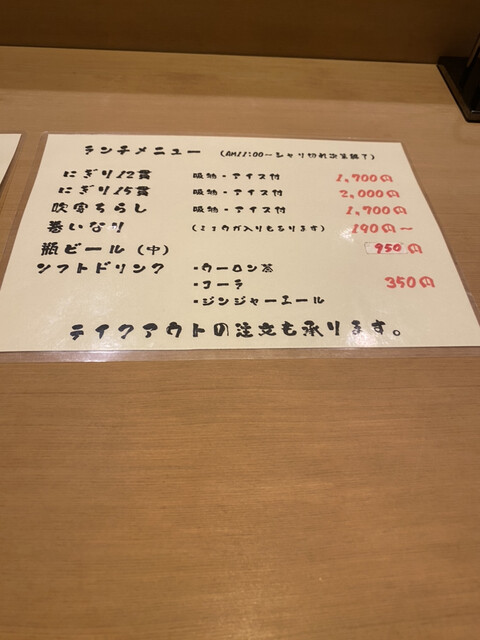 ランチメニュー (AM11:00〜シャリ切れ次第終了)
にぎり12貫 吸物・アイス付 1,700円
にぎり15貫 吸物・アイス付 2,000円
吹寄ちらし 吸物・アイス付 1,700円
巻いなり (ミョウガ入りもあります) 190円〜
瓶ビール(中) 950円
ソフトドリンク ・ウーロン茶
・コーラ 350円
・ジンジャーエール
テイクアウトの注文も承ります。